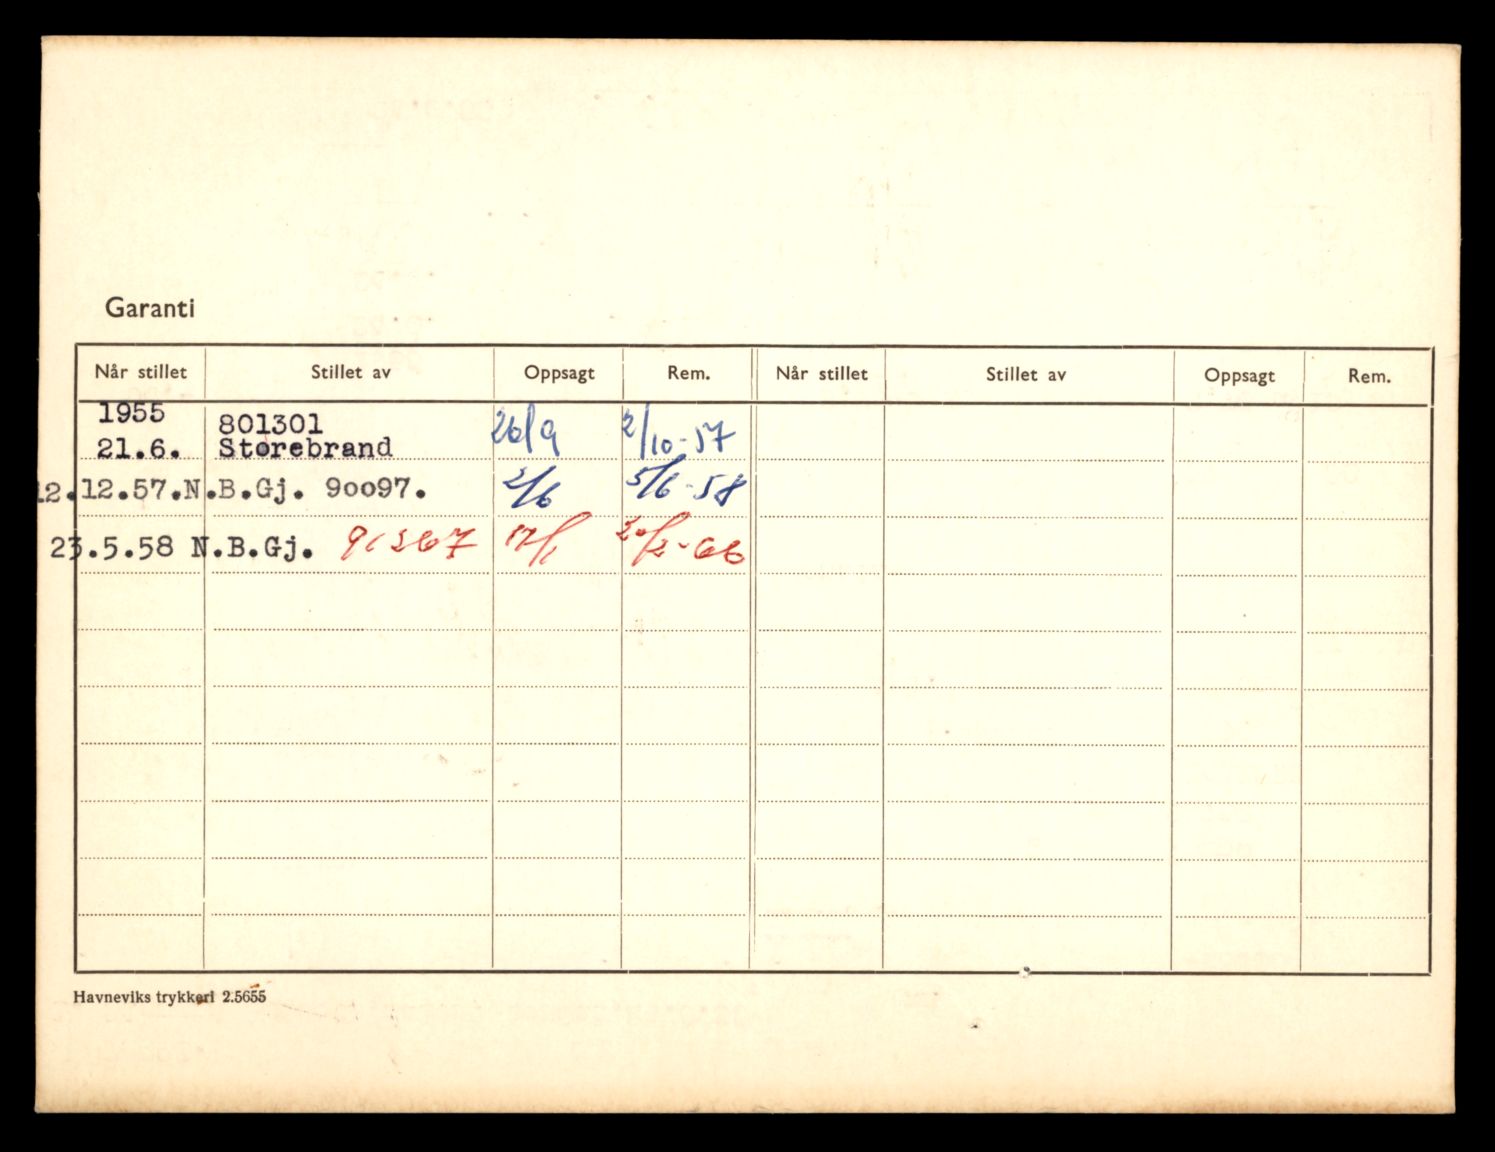 Garanti
Når stillet Stillet av Oppsagt Rem. Når stillet Stillet av Oppsagt Rem.
1955 801301 26/9 2/10-57
21.6. Storebrand
12.12.57.N.B.Gj. 90097. 2/6 5/6-58
23.5.58 N.B.Gj. 91367 17/1 20/2-66
Havneviks trykkeri 2.5655